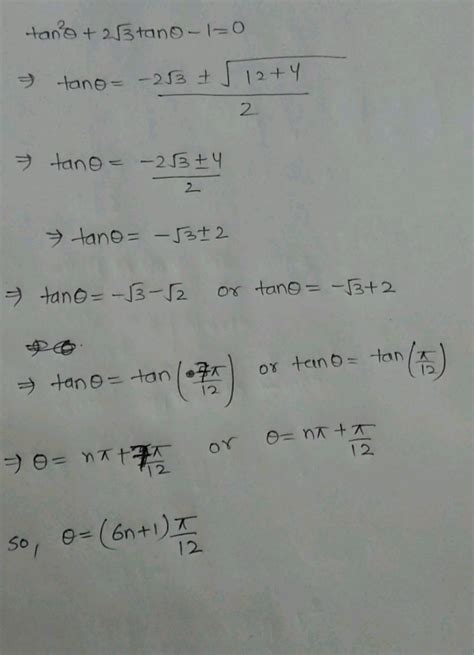 tan²θ + 2√3 tanθ - 1 = 0
⇒ tanθ = (-2√3 ± √(12+4))/2
⇒ tanθ = (-2√3 ± 4)/2
⇒ tanθ = -√3 ± 2
⇒ tanθ = -√3 - √2 or tanθ = -√3 + 2
⇒ tanθ = tan(7π/12) or tanθ = tan(π/12)
⇒ θ = nπ + 7π/12 or θ = nπ + π/12
so, θ = (6n+1) π/12